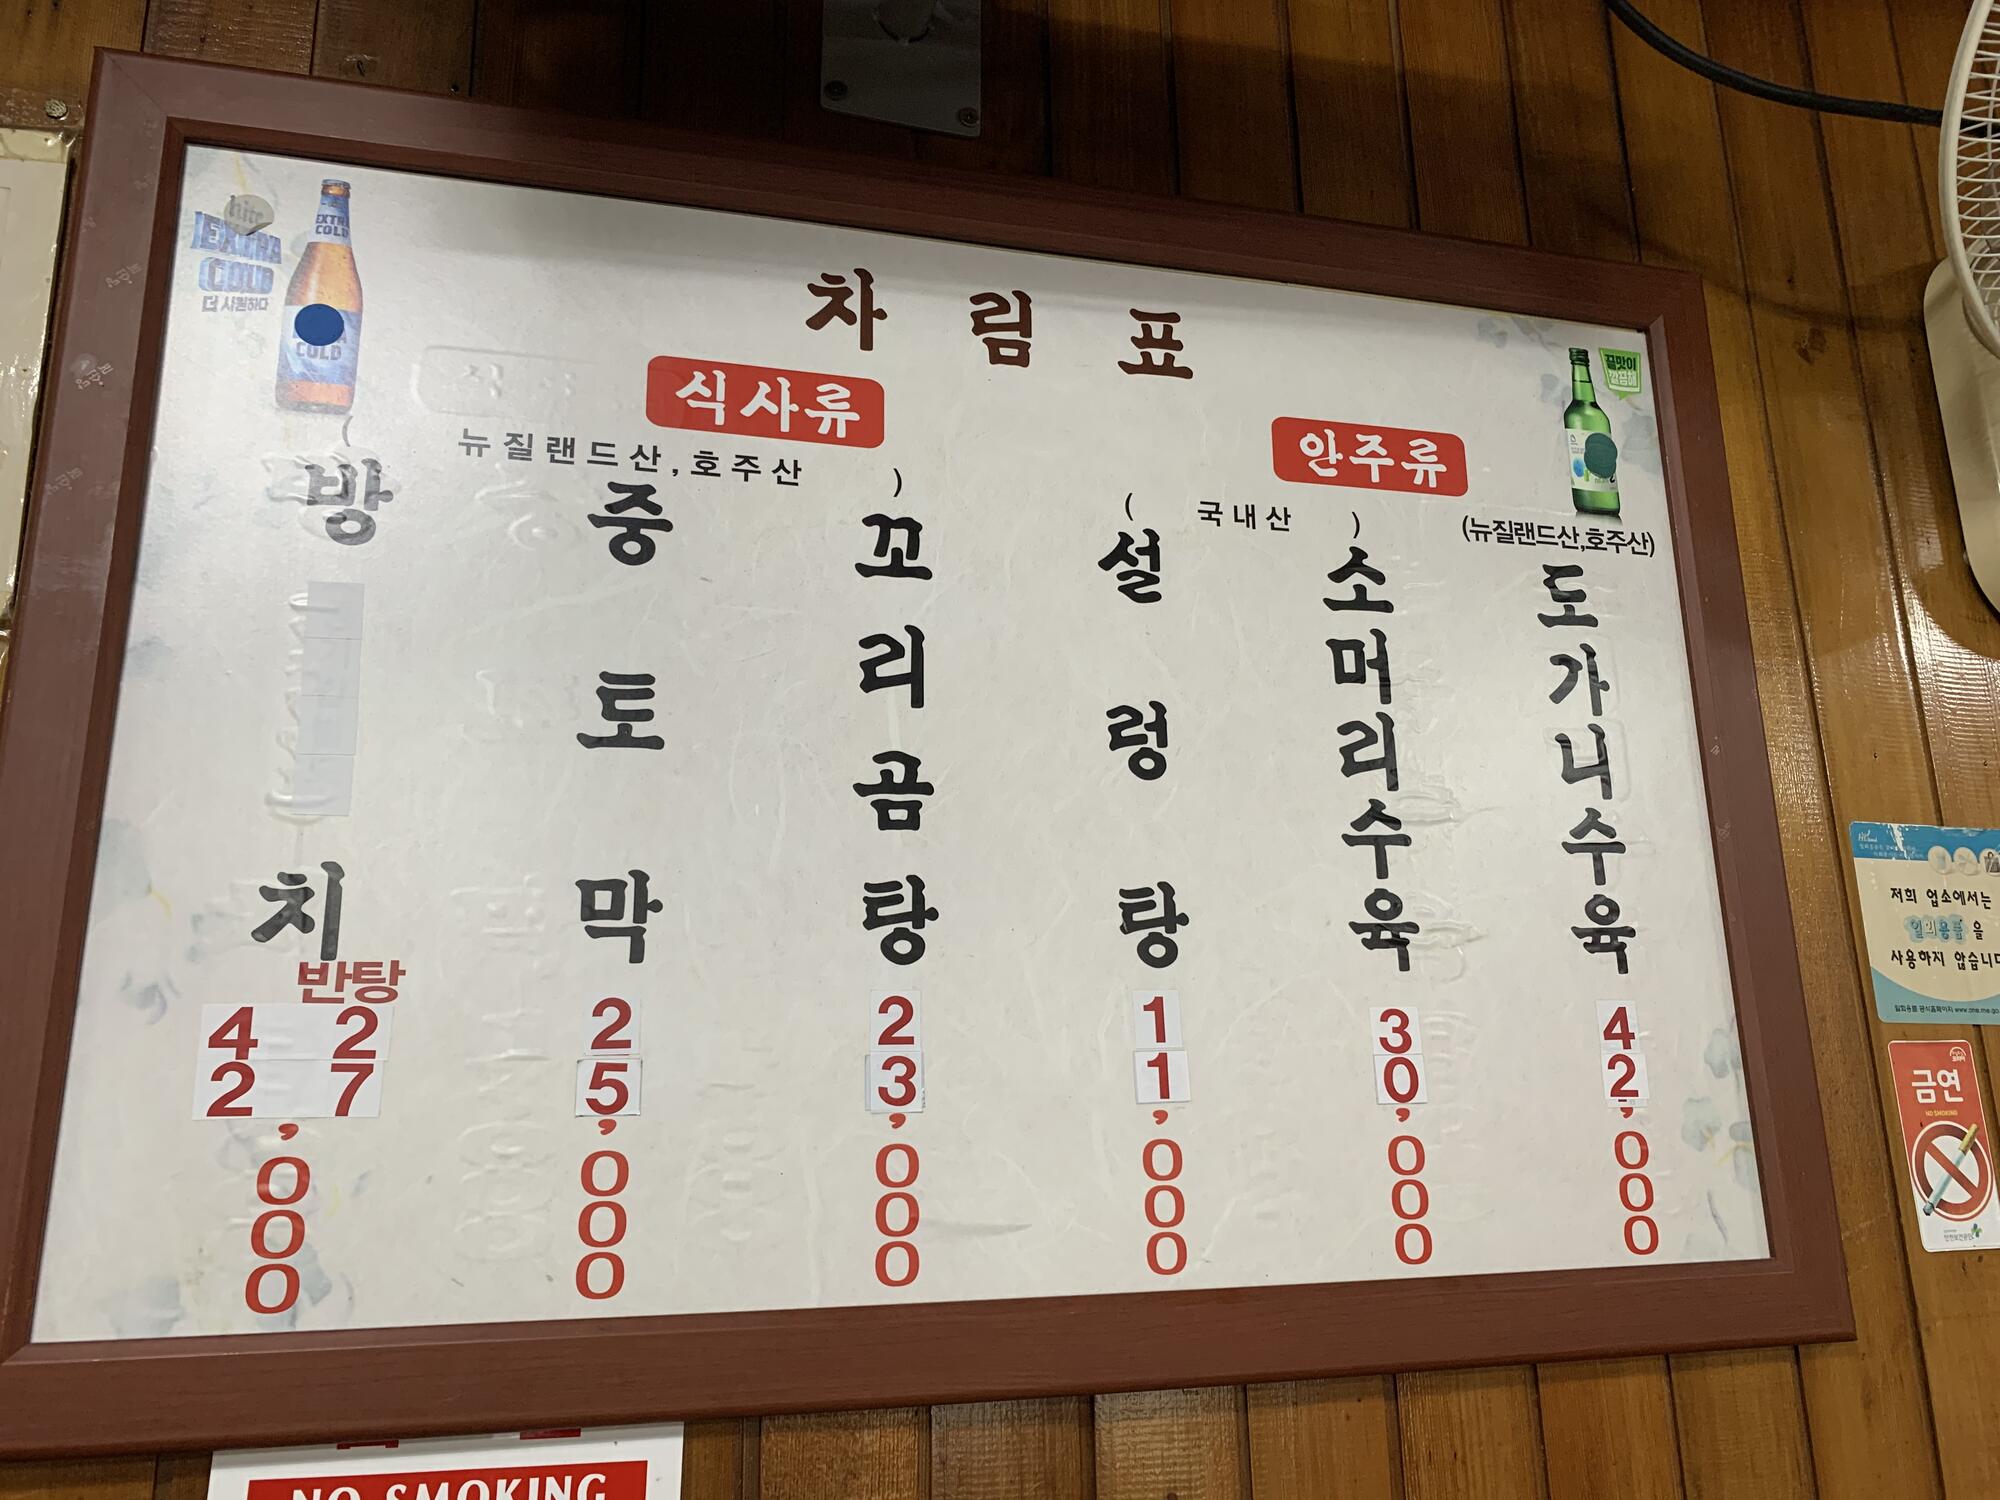 hite
EXTRA
COLD
더 시원하다
EXTRA
COLD
COLD
차림표
식사류
안주류
깔끔해
( 뉴질랜드산, 호주산 )
( 국내산 )
(뉴질랜드산,호주산)
방치
반탕
42 27
,000
중토막
25,000
꼬리곰탕
23,000
설렁탕
11,000
소머리수육
30,000
도가니수육
42,000
저희 업소에서는
일회용품을
사용하지 않습니다
금연
NO SMOKING
안전보건공단
NO SMOKING